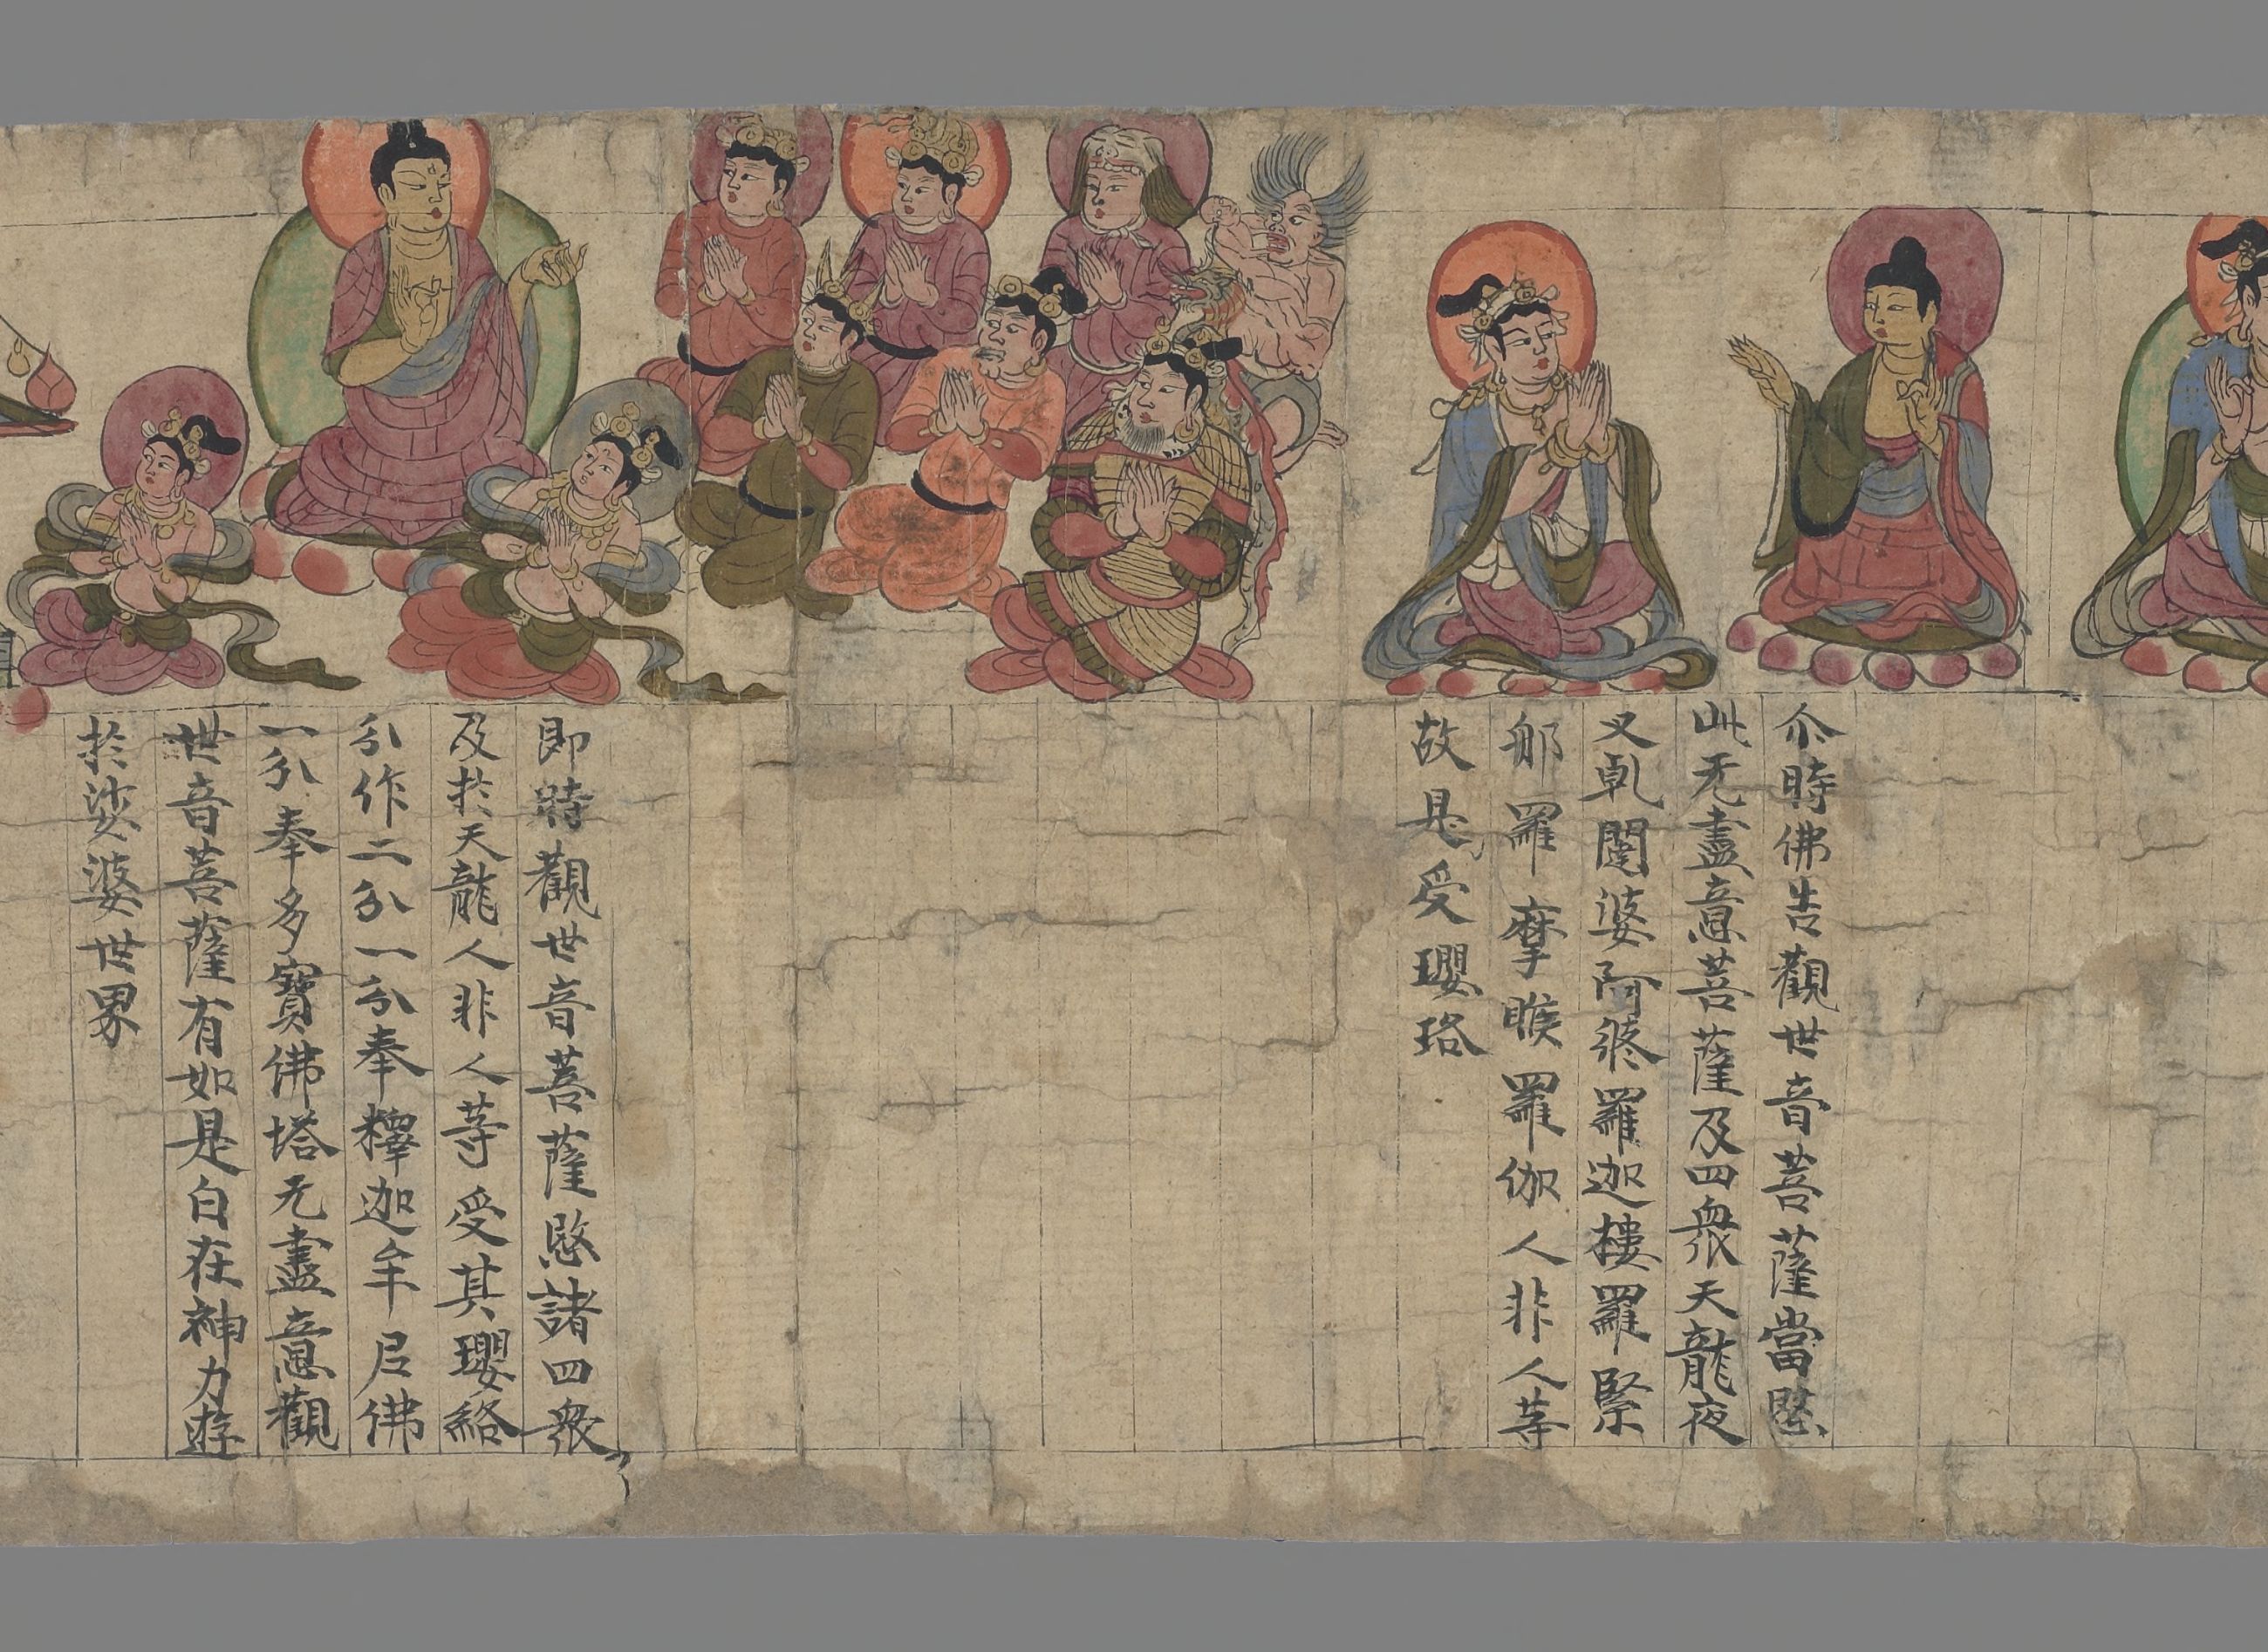 尒時佛告觀世音菩薩當愍
此无盡意菩薩及四衆天龍夜
叉乹闥婆阿修羅迦樓羅緊
那羅摩睺羅伽人非人等
故是受瓔珞
即時觀世音菩薩愍諸四衆
及於天龍人非人等受其瓔絡
分作二分一分奉釋迦牟尼佛
一分奉多寶佛塔无盡意觀
世音菩薩有如是自在神力遊
於娑婆世界